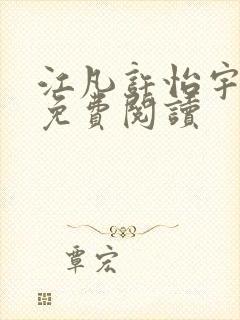 江凡許怡宇
免費閱讀
覃宏